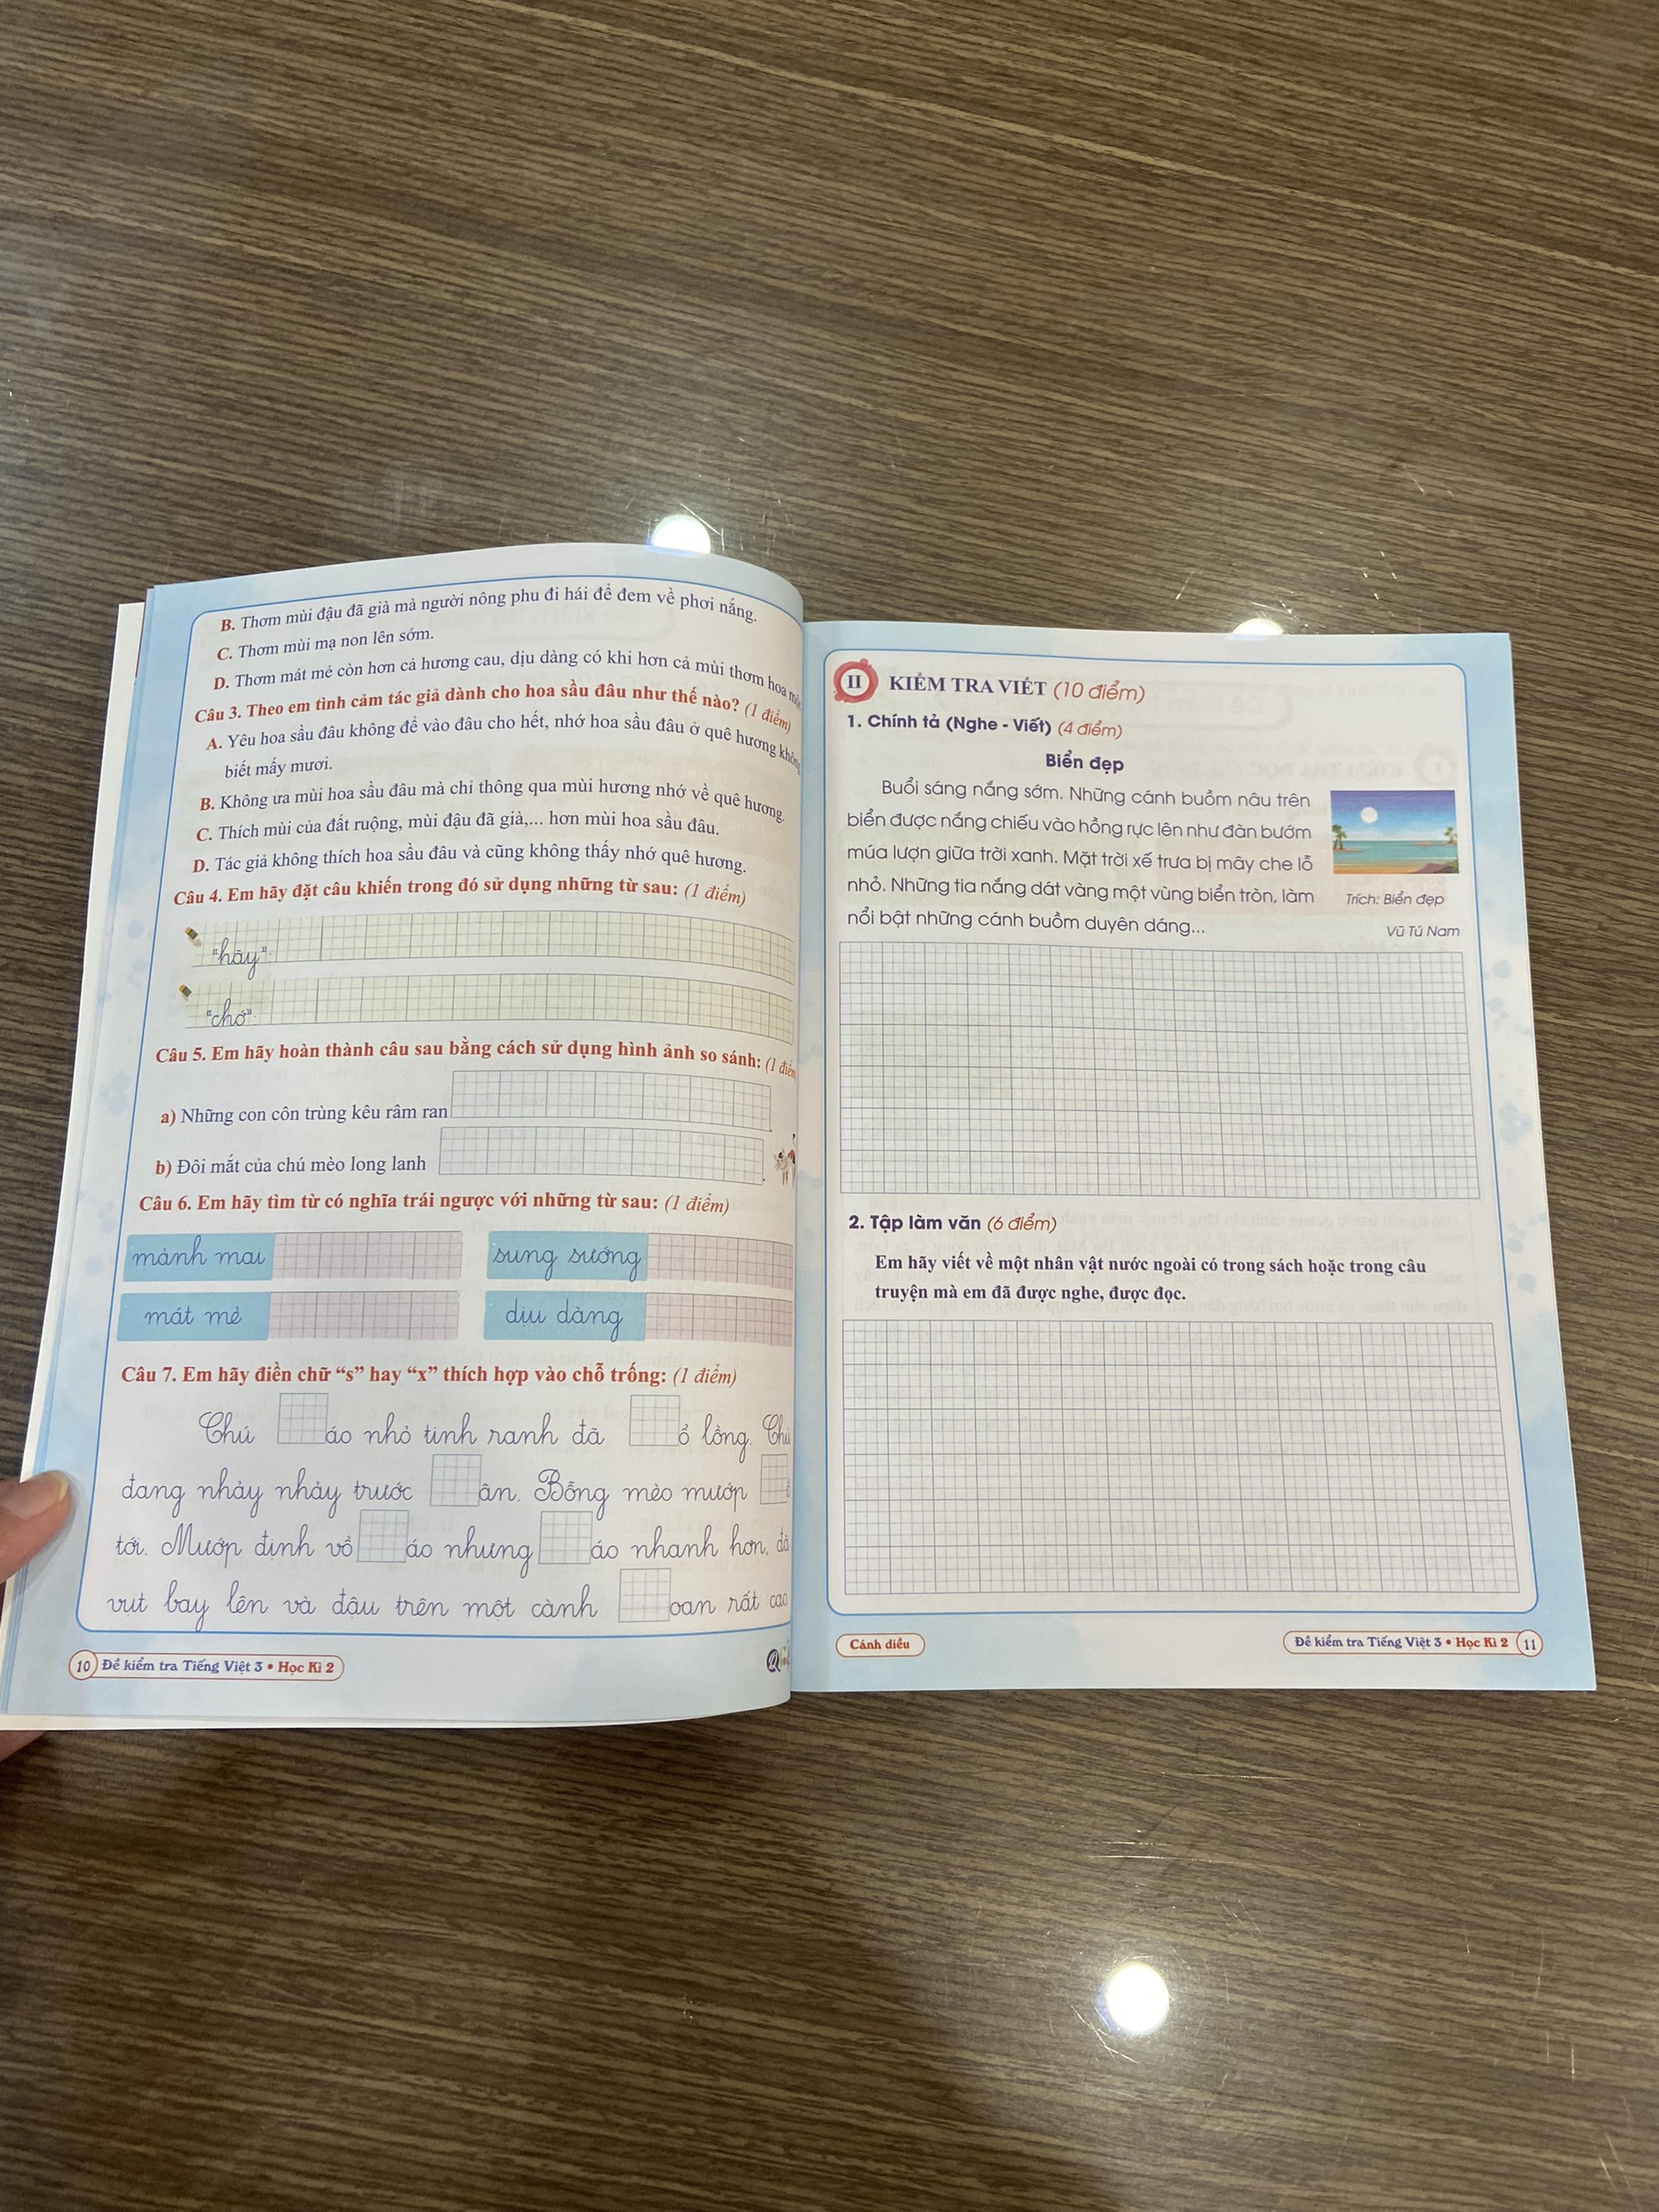 B. Thơm mùi đậu đã già mà người nông phu đi hái để đem về phơi nắng.
C. Thơm mùi mạ non lên sớm.
D. Thơm mát mẻ còn hơn cả hương cau, dịu dàng có khi hơn cả mùi thơm hoa
Câu 3. Theo em tình cảm tác giả dành cho hoa sầu đâu như thế nào? (1 điểm)
A. Yêu hoa sầu đâu không để vào đâu cho hết, nhớ hoa sầu đâu ở quê hương không
biết mấy mươi.
B. Không ưa mùi hoa sầu đâu mà chỉ thông qua mùi hương nhớ về quê hương.
C. Thích mùi của đất ruộng, mùi đậu đã già,... hơn mùi hoa sầu đâu.
D. Tác giả không thích hoa sầu đâu và cũng không thấy nhớ quê hương.
Câu 4. Em hãy đặt câu khiến trong đó sử dụng những từ sau: (1 điểm)
"hãy":
"chớ":
Câu 5. Em hãy hoàn thành câu sau bằng cách sử dụng hình ảnh so sánh: (1 điểm
a) Những con côn trùng kêu râm ran
b) Đôi mắt của chú mèo long lanh
Câu 6. Em hãy tìm từ có nghĩa trái ngược với những từ sau: (1 điểm)
mảnh mai sung sướng
mát mẻ dịu dàng
Câu 7. Em hãy điền chữ “s” hay “x” thích hợp vào chỗ trống: (1 điểm)
Chú áo nhỏ tinh ranh đã ổ lồng. Chú
đang nhảy nhảy trước ân. Bỗng mèo mướp
tới. Mướp định vồ áo nhưng áo nhanh hơn, đã
vút bay lên và đậu trên một cành oan rất cao
10 Đề kiểm tra Tiếng Việt 3 • Học Kì 2
II KIỂM TRA VIẾT (10 điểm)
1. Chính tả (Nghe - Viết) (4 điểm)
Biển đẹp
Buổi sáng nắng sớm. Những cánh buồm nâu trên
biển được nắng chiếu vào hồng rực lên như đàn bướm
múa lượn giữa trời xanh. Mặt trời xế trưa bị mây che lỗ
nhỏ. Những tia nắng dát vàng một vùng biển tròn, làm
nổi bật những cánh buồm duyên dáng...
Trích: Biển đẹp
Vũ Tú Nam
2. Tập làm văn (6 điểm)
Em hãy viết về một nhân vật nước ngoài có trong sách hoặc trong câu
truyện mà em đã được nghe, được đọc.
Cánh diều
Đề kiểm tra Tiếng Việt 3 • Học Kì 2 11